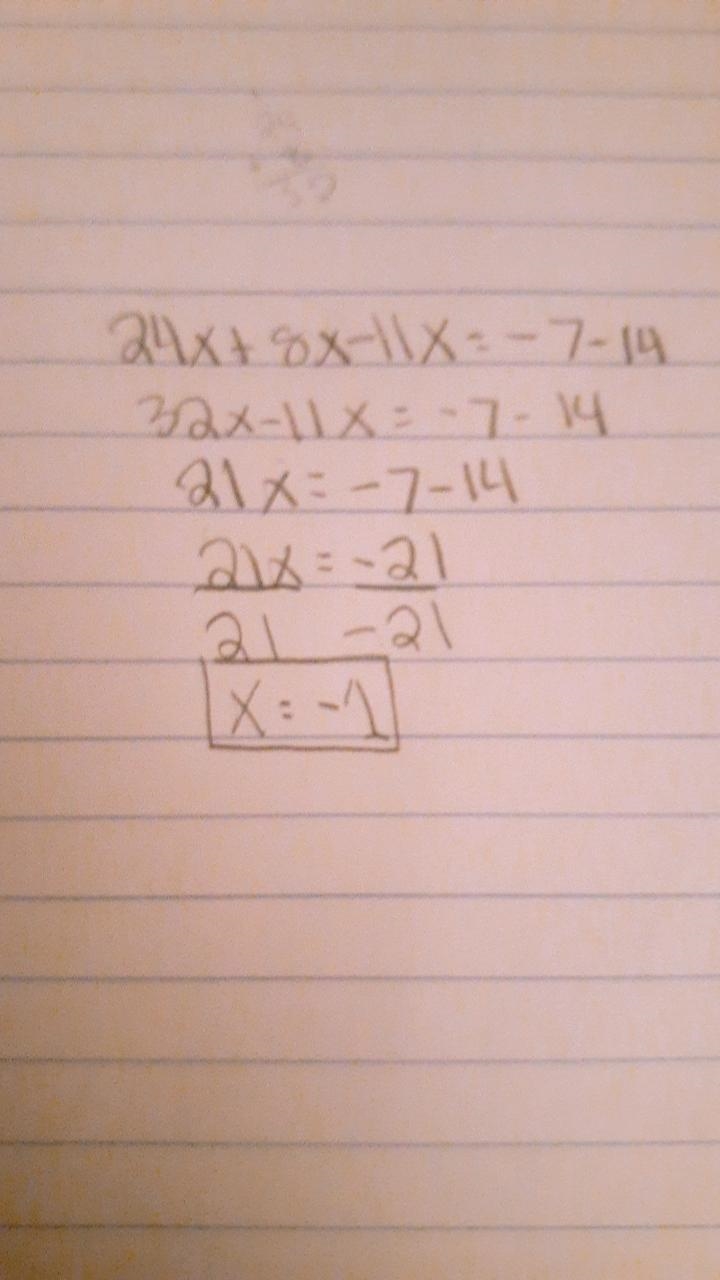 24x+ 8x-11x = -7-14
32x-11x = -7- 14
21x = -7-14
21x = -21
21 -21
x = -1